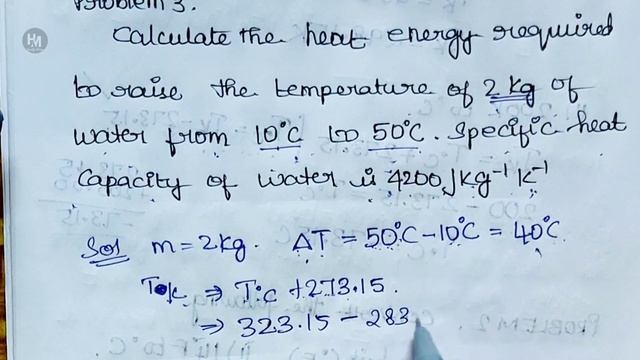 HM
Problem 3.
Calculate the heat energy required
to raise the temperature of 2 kg of
water from 10°C to 50°C. Specific heat
Capacity of water is 4200 J kg⁻¹ K⁻¹
Sol m = 2 kg. ΔT = 50°C – 10°C = 40°C
T°K ⇒ T°C + 273.15.
⇒ 323.15 – 283